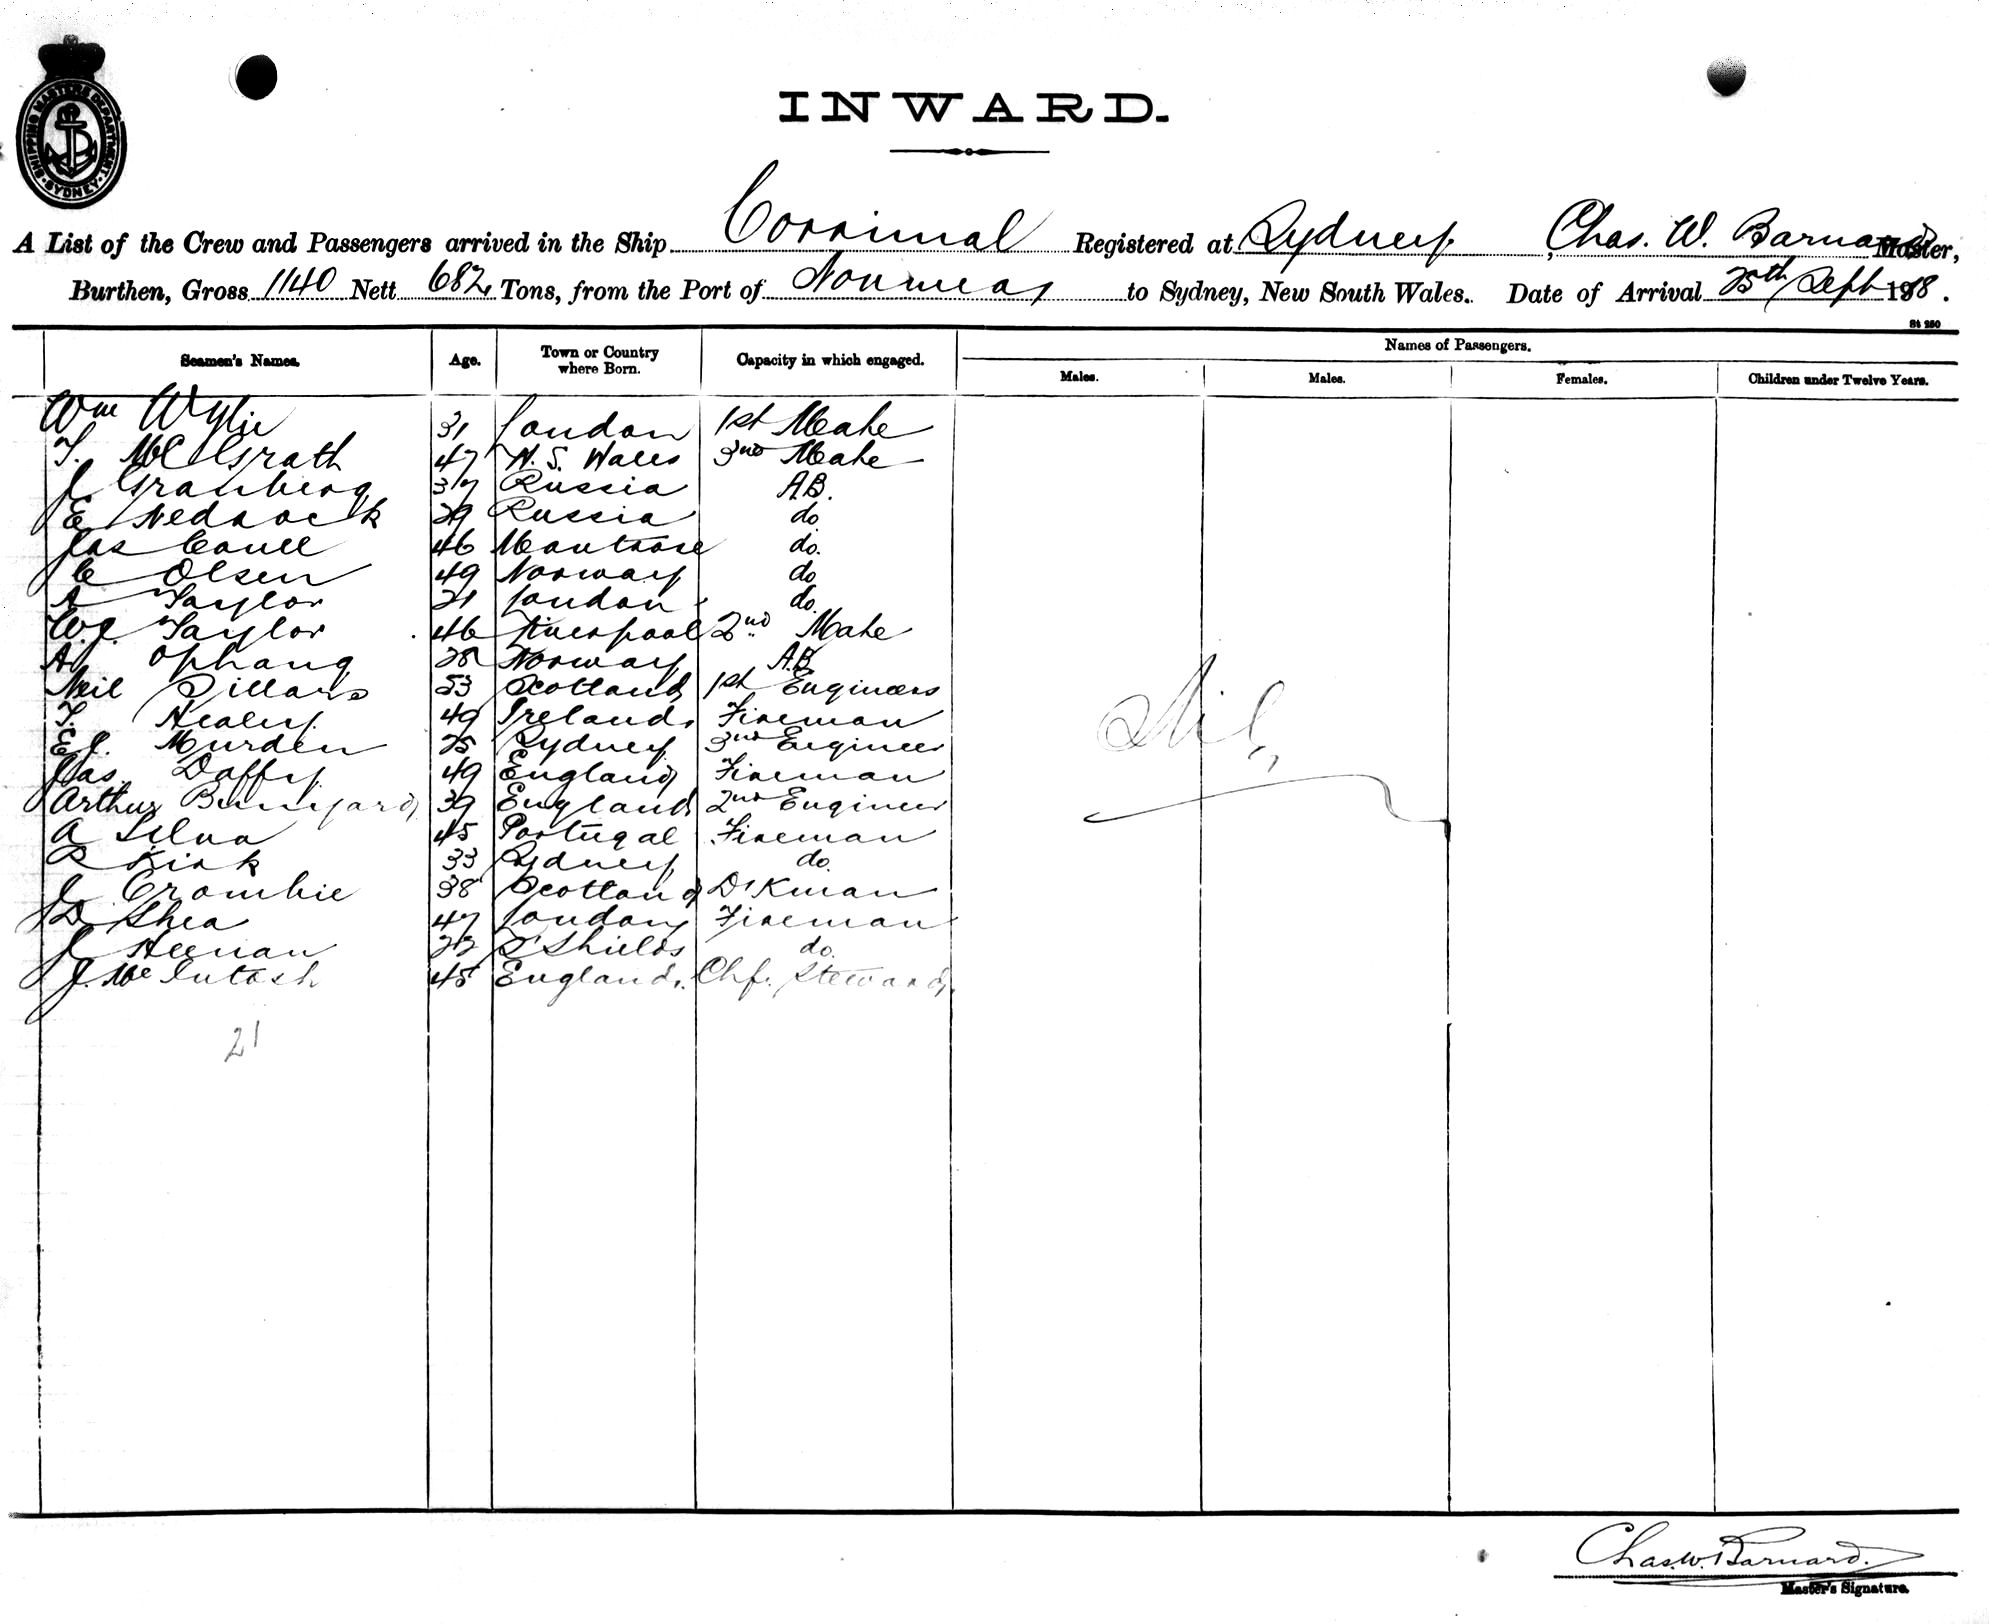 SHIPPING MASTERS DEPARTMENT SYDNEY
INWARD.
A List of the Crew and Passengers arrived in the Ship Corrimal Registered at Sydney, Chas. W. Barnard Master,
Burthen, Gross 1140 Nett 682 Tons, from the Port of Noumea to Sydney, New South Wales. Date of Arrival 25th Sept 1918.
St 250
Seamen's Names. Age. Town or Country where Born. Capacity in which engaged. Names of Passengers.
Males. Males. Females. Children under Twelve Years.
Wm Wylie 31 London 1st Mate
T. McGrath 47 N.S. Wales 3rd Mate
J. Granberg 37 Russia A.B.
E 29 Russia do
Jas 46 Montrose do.
C Olsen 49 Norway do
A Taylor 21 London do.
W.J. Taylor 46 Liverpool 2nd Mate
A. Ophaug 28 Norway A.B.
Neil Sillars 53 Scotland 1st Engineers
T. Healy 49 Ireland Fireman
E J. Murden 25 Sydney 3rd Engineer
Jas. Daffy 49 England Fireman
Arthur Bunyard 39 England 2nd Engineer
A Silva 45 Portugal Fireman
R Kirk 33 Sydney do.
J Crombie 38 Scotland D'Kman
D Shea 47 London Fireman
J Heenan S' Shields do.
J. McIntosh 45 England. Chf. Steward.
Nil
21
Chas. W. Barnard.
Master's Signature.